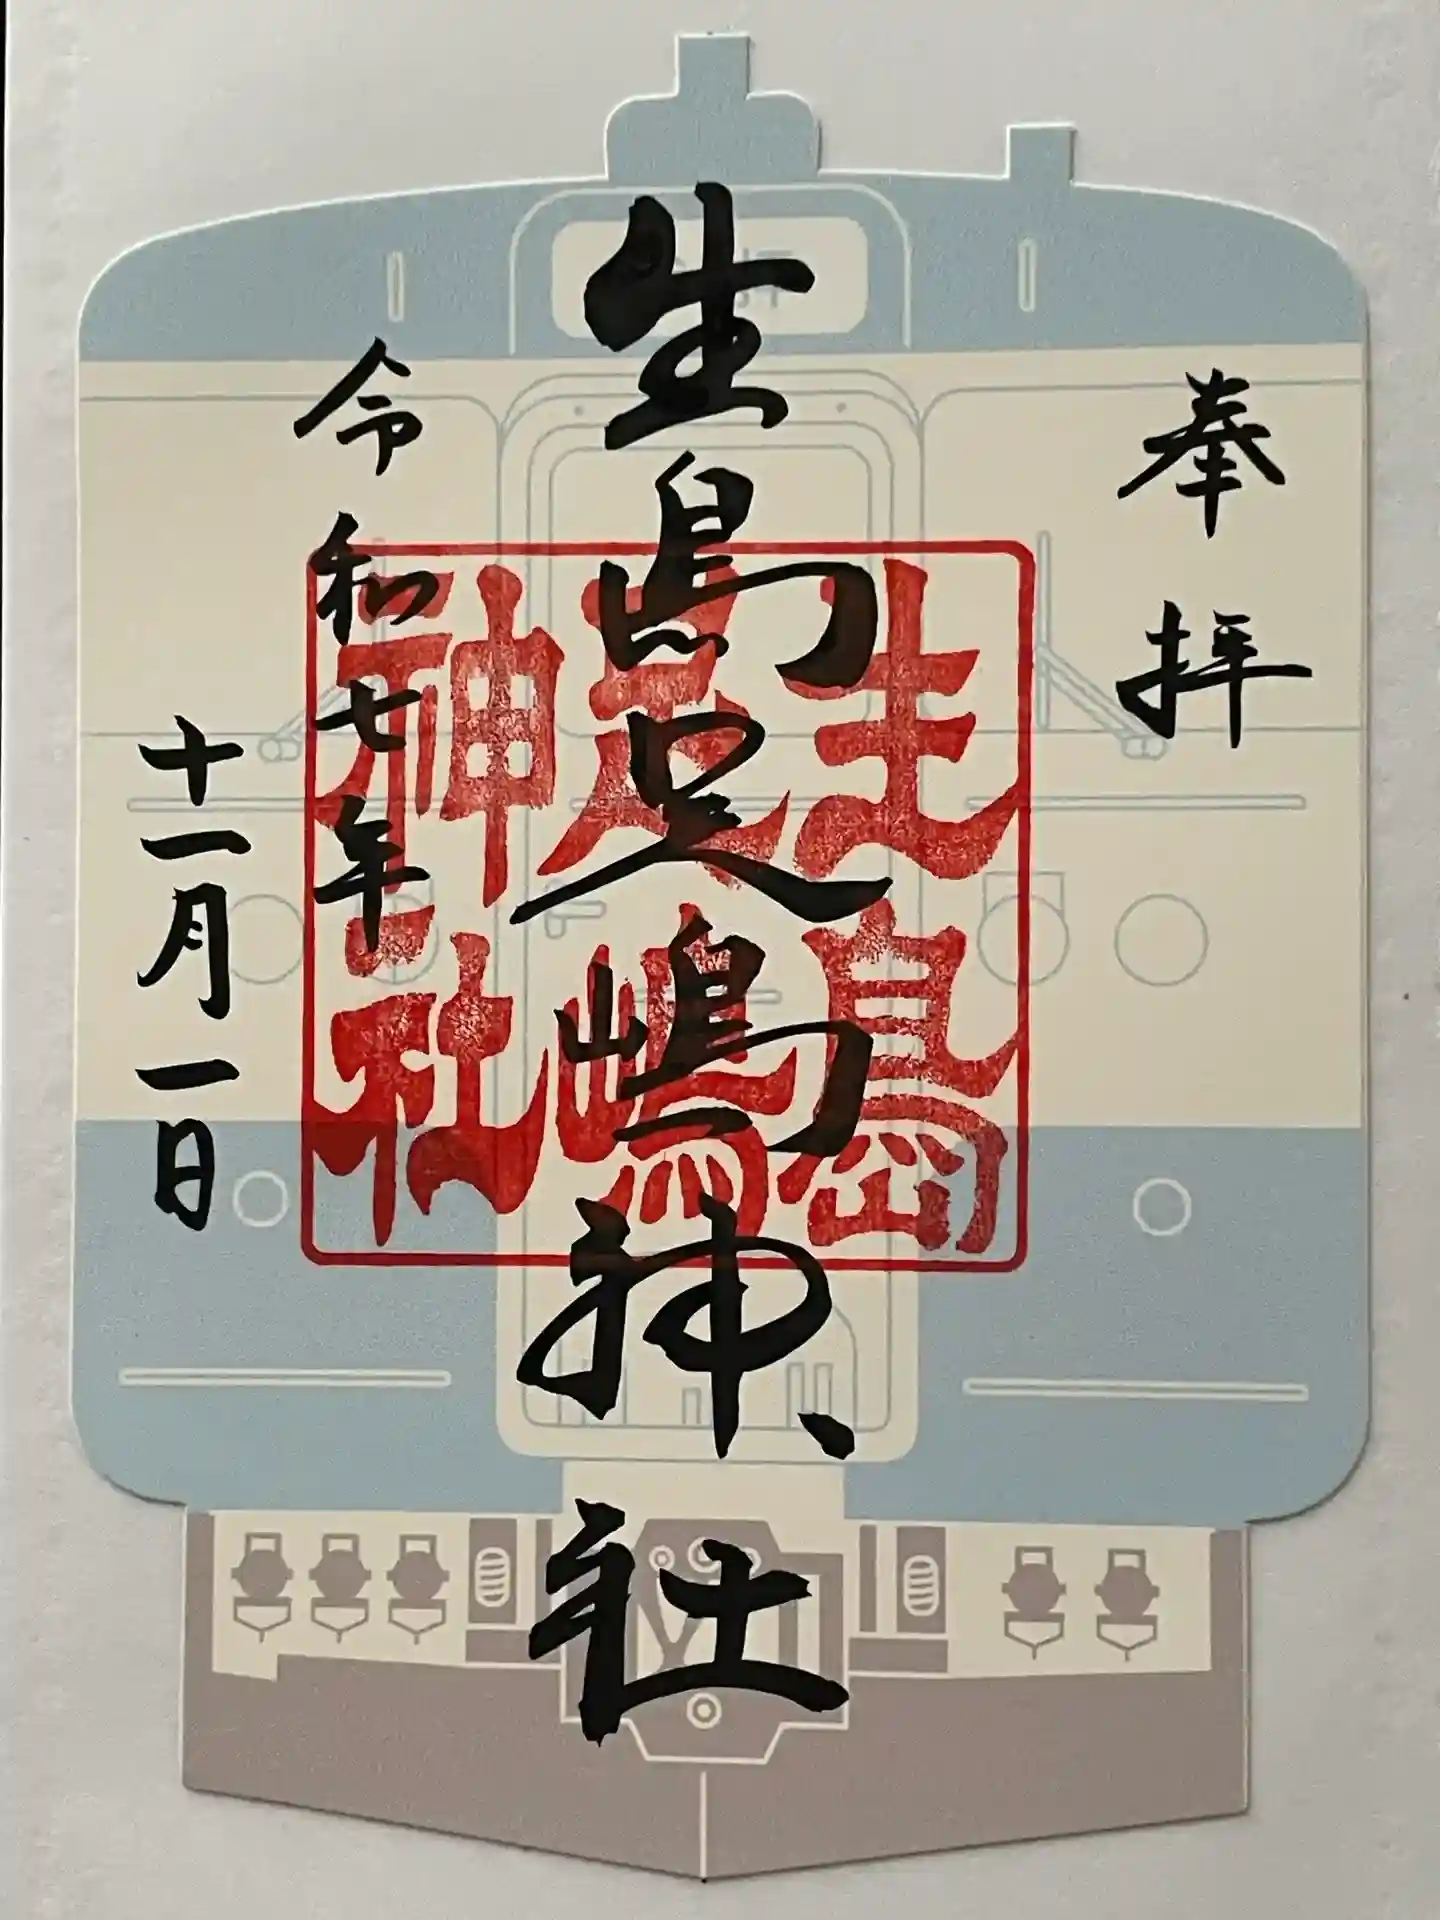 奉拝
生島足嶋神社
生島足嶋神社
令和七年
十一月一日